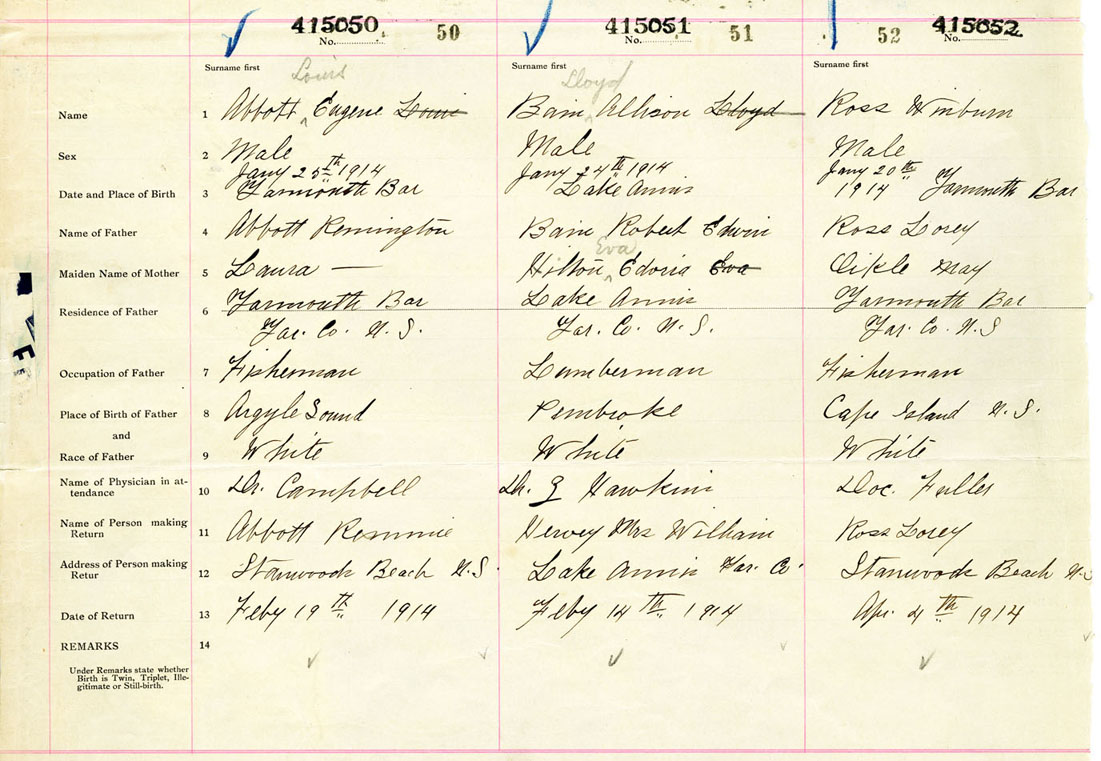 415050 50 415051 51 52 415052
No. No. No.
Surname first Surname first Surname first
Louis Lloyd
Name 1 Abbott, Eugene Louis Bain, Allison Lloyd Ross Winburn
Sex 2 Male Male Male
Jany 25th 1914 Jany 24th 1914 Jany 20th
Date and Place of Birth 3 Yarmouth Bar Lake Annis 1914 Yarmouth Bar
Name of Father 4 Abbott Remington Bain Robert Edwin Ross Lorey
Eva
Maiden Name of Mother 5 Laura — Hilton, Edoria Eva Oikle May
Residence of Father 6 Yarmouth Bar Lake Annis Yarmouth Bar
Yar. Co. N.S. Yar. Co. N.S. Yar. Co. N.S
Occupation of Father 7 Fisherman Lumberman Fisherman
Place of Birth of Father 8 Argyle Sound Pembroke Cape Island N.S.
and
Race of Father 9 White White White
Name of Physician in at-
tendance 10 Dr. Campbell Dr. Hawkins Doc. Fuller
Name of Person making
Return 11 Abbott Remmie Hervey Mrs William Ross Lorey
Address of Person making
Retur 12 Stanwood Beach N.S. Lake Annis Yar. Co. Stanwood Beach N.S
Date of Return 13 Feby 19th 1914 Feby 14th 1914 Apr. 4th 1914
REMARKS 14
Under Remarks state whether
Birth is Twin, Triplet, Ille-
gitimate or Still-birth.